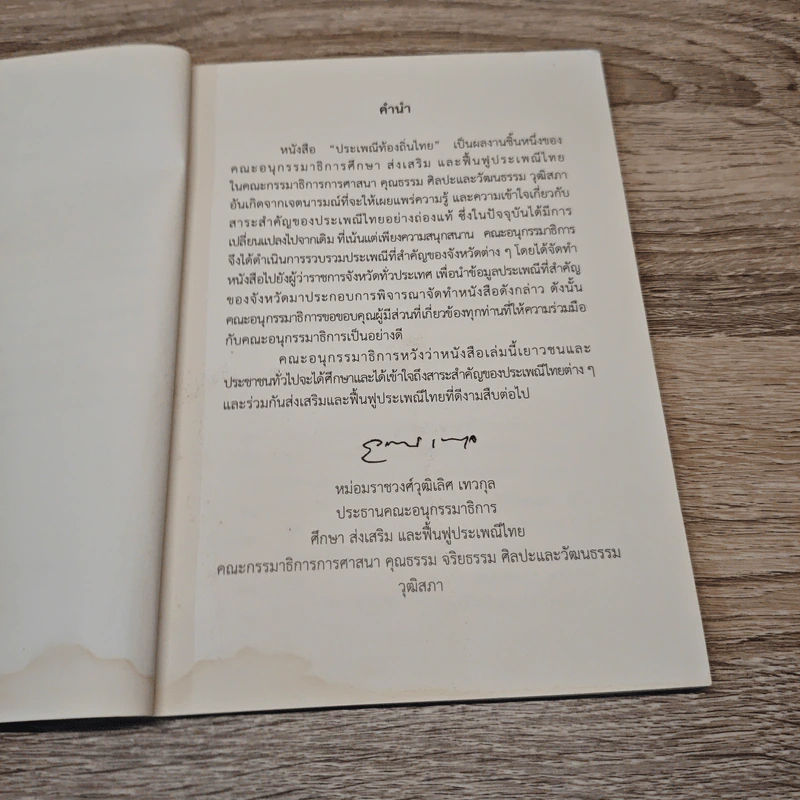 คำนำ
หนังสือ "ประเพณีท้องถิ่นไทย" เป็นผลงานชิ้นหนึ่งของ
คณะอนุกรรมาธิการศึกษา ส่งเสริม และฟื้นฟูประเพณีไทย
ในคณะกรรมาธิการการศาสนา คุณธรรม ศิลปะและวัฒนธรรม วุฒิสภา
อันเกิดจากเจตนารมณ์ที่จะให้เผยแพร่ความรู้ และความเข้าใจเกี่ยวกับ
สาระสำคัญของประเพณีไทยอย่างถ่องแท้ ซึ่งในปัจจุบันได้มีการ
เปลี่ยนแปลงไปจากเดิม ที่เน้นแต่เพียงความสนุกสนาน คณะอนุกรรมาธิการ
จึงได้ดำเนินการรวบรวมประเพณีที่สำคัญของจังหวัดต่าง ๆ โดยได้จัดทำ
หนังสือไปยังผู้ว่าราชการจังหวัดทั่วประเทศ เพื่อนำข้อมูลประเพณีที่สำคัญ
ของจังหวัดมาประกอบการพิจารณาจัดทำหนังสือดังกล่าว ดังนั้น
คณะอนุกรรมาธิการขอขอบคุณผู้มีส่วนที่เกี่ยวข้องทุกท่านที่ให้ความร่วมมือ
กับคณะอนุกรรมาธิการเป็นอย่างดี
คณะอนุกรรมาธิการหวังว่าหนังสือเล่มนี้เยาวชนและ
ประชาชนทั่วไปจะได้ศึกษาและได้เข้าใจถึงสาระสำคัญของประเพณีไทยต่าง ๆ
และร่วมกันส่งเสริมและฟื้นฟูประเพณีไทยที่ดีงามสืบต่อไป
หม่อมราชวงศ์วุฒิเลิศ เทวกุล
ประธานคณะอนุกรรมาธิการ
ศึกษา ส่งเสริม และฟื้นฟูประเพณีไทย
คณะกรรมาธิการการศาสนา คุณธรรม จริยธรรม ศิลปะและวัฒนธรรม
วุฒิสภา